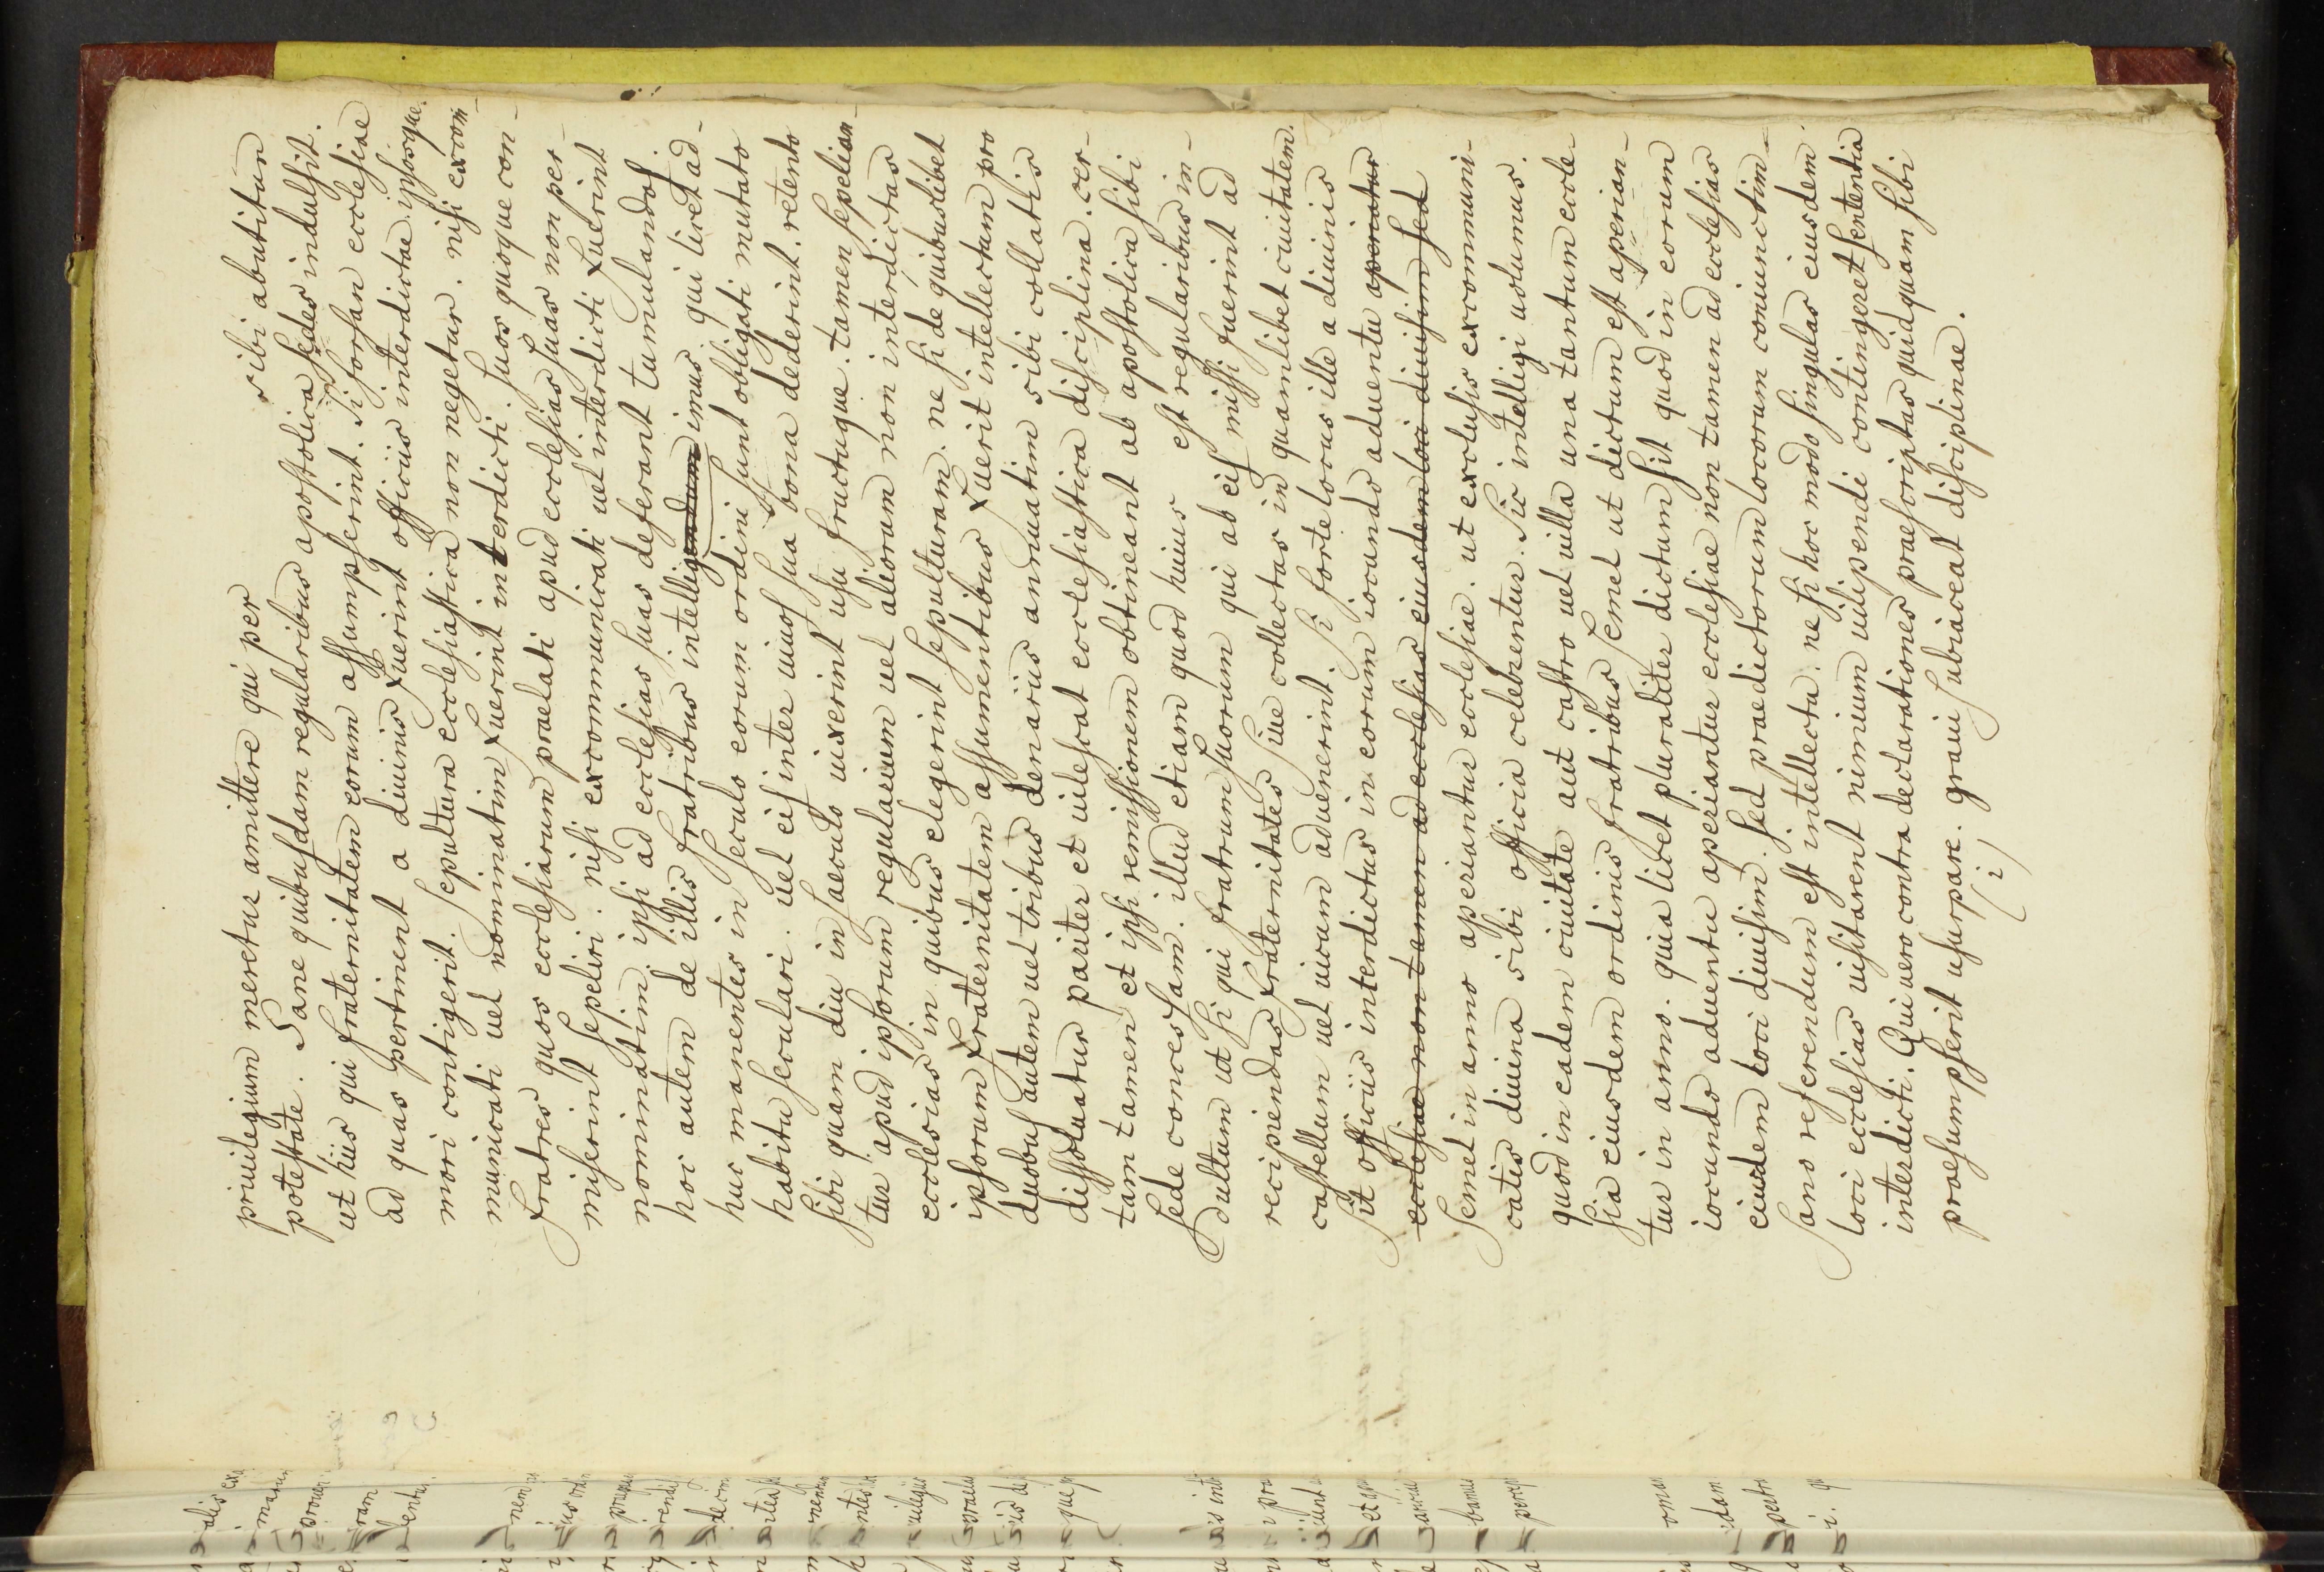 priuilegium meretur amittere qui per sibi abutitur
potestate. Sane quibusdam regularibus apostolica sedes indulsit.
ut hiis qui fraternitatem eorum assumpserint. si forsan ecclesiae
ad quas pertinent a diuinis fuerint officiis interdictae. ipsosque
mori contigerit. sepultura ecclesiastica non negetur. nisi excom-
municati uel nominatim fuerint interdicti. suos quoque con-
fratres quos ecclesiarum praelati apud ecclesias suas non per-
miserint sepeliri. nisi excommunicati uel interdicti fuerint
nominatim. ipsi ad ecclesias suas deferant tumulandos.
hoc autem de illis fratribus intelligendum imus. qui licet ad-
huc manentes in seculo eorum ordini sunt obligati mutato
habitu seculari. uel eis inter uiuos sua bona dederint. retento
sibi quam diu in saeculo uixerint usu fructuque. tamen sepelian-
tur apud ipsorum regularium uel aliorum non interdictas
ecclesias in quibus elegerint sepulturam. ne si de quibuslibet
ipsorum fraternitatem assumentibus fuerit intellectum pro
duobus autem uel tribus denariis annuatim sibi collatis
dissoluatur pariter et uilescat ecclesiastica disciplina. cer-
tam tamen et ipsi remissionem obtineant ab apostolica sibi
sede concessam. illud etiam quod huius est regularibus in-
dultum ut si qui fratrum suorum qui ab eis missi fuerint ad
recipiendas fraternitates siue collectas in quamlibet ciuitatem.
castellum uel uicum aduenerint. si forte locus ille a diuinis
sit officiis interdictus in eorum iocundo aduentu aperiatur
ecclesiae non tamen ad ecclesias eiusdem loci diuisim sed
semel in anno aperiantur ecclesiae. ut exclusis excommuni-
catis diuina sibi officia celebrentur. Sic intelligi uolumus.
quod in eadem ciuitate aut castro uel uilla una tantum eccle-
sia eiusdem ordinis fratribus semel ut dictum est aperian-
tur in anno. quia licet pluraliter dictum sit quod in eorum
iocundo aduentu aperiantur ecclesiae non tamen ad ecclesias
eiusdem loci diuisim. sed praedictorum locorum coniunctim
sano referendum est intellectu. ne si hoc modo singulas eiusdem
loci ecclesias uisitarent nimium uilipendi contingeret sententia
interdicti. Qui uero contra declarationes praescriptas quidquam sibi
praesumpserit usurpare. graui subiaceat disciplinae.
(i)